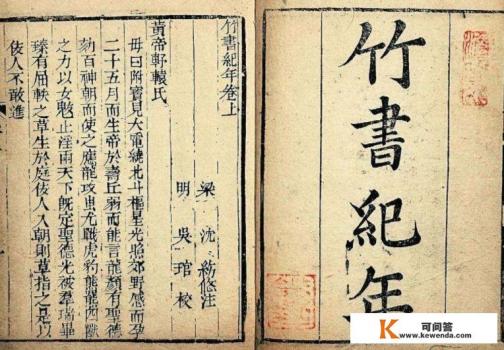 竹書紀年
竹書紀年卷上
梁 沈約 注
明 吳琯校
黃帝軒轅氏
母曰附寶見大電繞北斗樞星光照郊野感而孕
二十五月而生帝於壽丘弱而能言龍顏有聖德
劾百神朝而使之應龍攻蚩尤戰虎豹熊羆四獸
之力以女魃止淫雨天下既定聖德光被羣瑞畢
臻有屈軼之草生於庭佞人入朝則草指之是以
佞人不敢進
K 可问答
www.kewenda.com